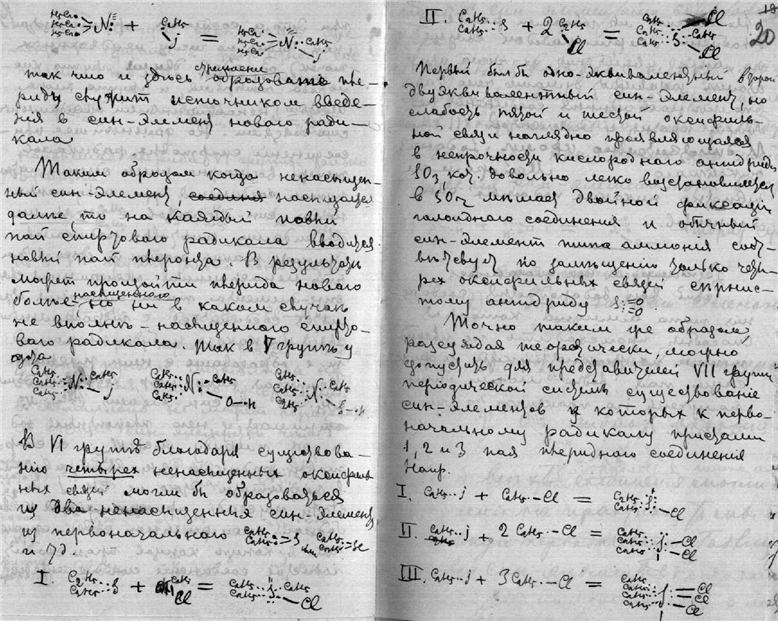 H5C2
H5C2 N + C2H5 j = H5C2 H5C2 H5C2 N C2H5 j
так что и здесь образование
служит источником введе-
ния в син-элемент нового ради-
кала
Таким образом когда ненасыщен-
ный син-элемент, насыщается
далее, то на каждый новый
пай спиртового радикала вводится
новый пай В результате
может произойти нового
более насыщенного но ни в каком случае
не вполне-насыщенного спирто-
вого радикала. Так в V группе у
азота
C2H5 C2H5 C2H5 N C2H5 j
C2H5 C2H5 C2H5 N C2H5 O-H
C2H5 C2H5 C2H5 N C2H5
В VI группе благодаря существова-
нию четырех ненасыщенных оксифиль-
ных связей могли бы образоваться
два ненасыщенных син-элемента
из первоначального C2H5 C2H5 S
и т.д.
I. C2H5 C2H5 S + C2H5 Cl = C2H5 C2H5 S C2H5 Cl
20
II. C2H5 C2H5 S + 2 C2H5 Cl = C2H5 C2H5 C2H5 C2H5 S Cl Cl
Первый был бы одно-эквивалентный второй
двуэквивалентный син-элемент, но
слабость пятой и шестой оксифиль-
ной связи наглядно проявляющаяся
в непрочности кислородного ангидрида
SO3, довольно легко
в SO2 мешает двойной фиксации
галоидного соединения и обычный
син-элемент типа аммония соот-
ветствует по замещению только четы-
рех оксифильных связей сернис-
тому ангидриду S=O=O
Точно таким же образом,
рассуждая теоретически, можно
допустить для представителей VII группы
периодической системы существование
син-элементов у которых к перво-
начальному радикалу придали
1, 2 и 3 пая соединения
Напр.
I. C2H5 -j + C2H5 -Cl = C2H5 C2H5 j -Cl
II. C2H5 -j + 2 C2H5 -Cl = C2H5 C2H5 C2H5 j Cl Cl
III. C2H5 -j + 3 C2H5 -Cl = C2H5 C2H5 C2H5 C2H5 j Cl Cl Cl